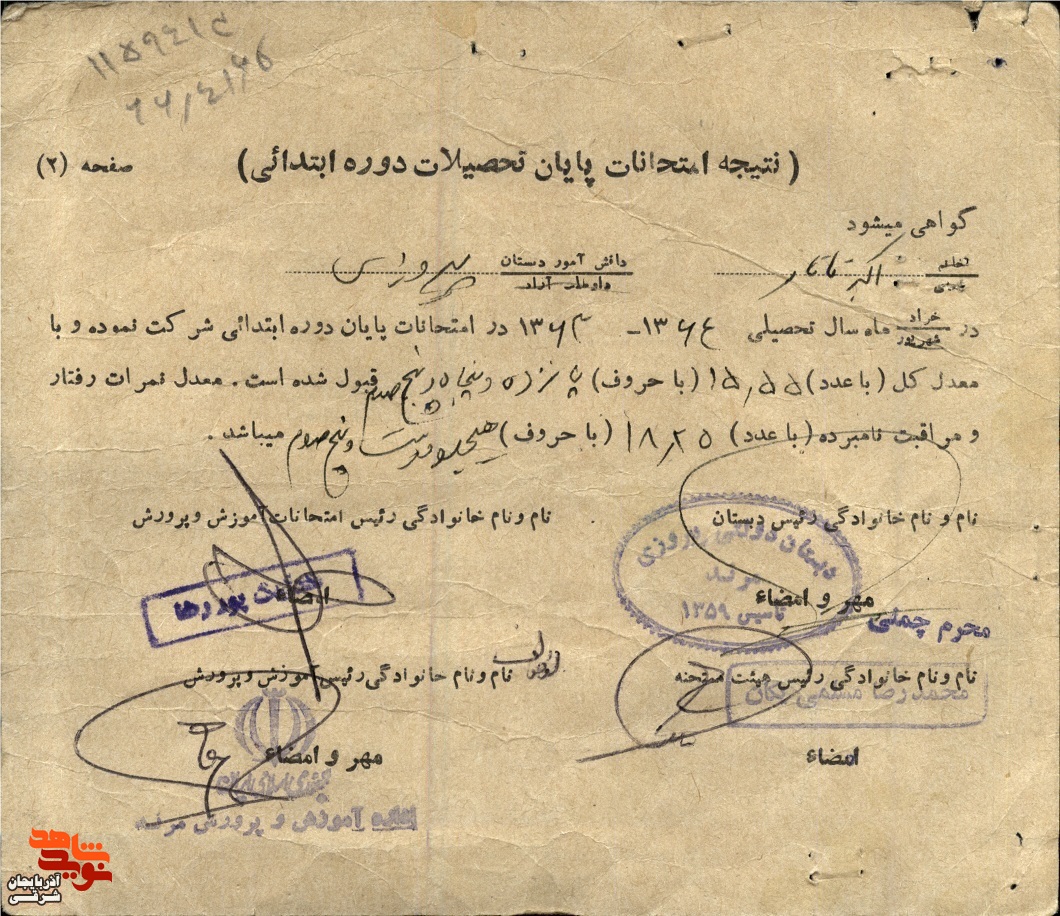 (نتیجه امتحانات پایان تحصیلات دوره ابتدائی) صفحه (۲)
گواهی میشود
آقا/خانم اکبر دانش آموز دستان
داوطلب آزاد
در خرداد ماه سال تحصیلی ۶۴ ۱۳ـ ۶۳ ۱۳ در امتحانات پایان دوره ابتدائی شرکت نموده و با
شهریور
معدل کل (با عدد) ۱۵٫۵۵ (با حروف) پانزده و پنجاه و پنج صدم قبول شده است . معدل نمرات رفتار
و مراقبت نامبرده (با عدد) ۱۸٫۲۵ (با حروف) هیجده و بیست و پنج صدم میباشد .
نام و نام خانوادگی رئیس دبستان نام و نام خانوادگی رئیس امتحانات آموزش و پرورش
دبستان دولتی پیروزی
مرند
تأسیس ۱۳۵۹
مهر و امضاء امضاء
محرم چمنی
نام و نام خانوادگی رئیس هیئت ممتحنه نام و نام خانوادگی رئیس آموزش و پرورش
محمدرضا
امضاء مهر و امضاء
جمهوری اسلامی ایران
اداره آموزش و پرورش مرند
نوید شاهد
آذربایجان
شرقی